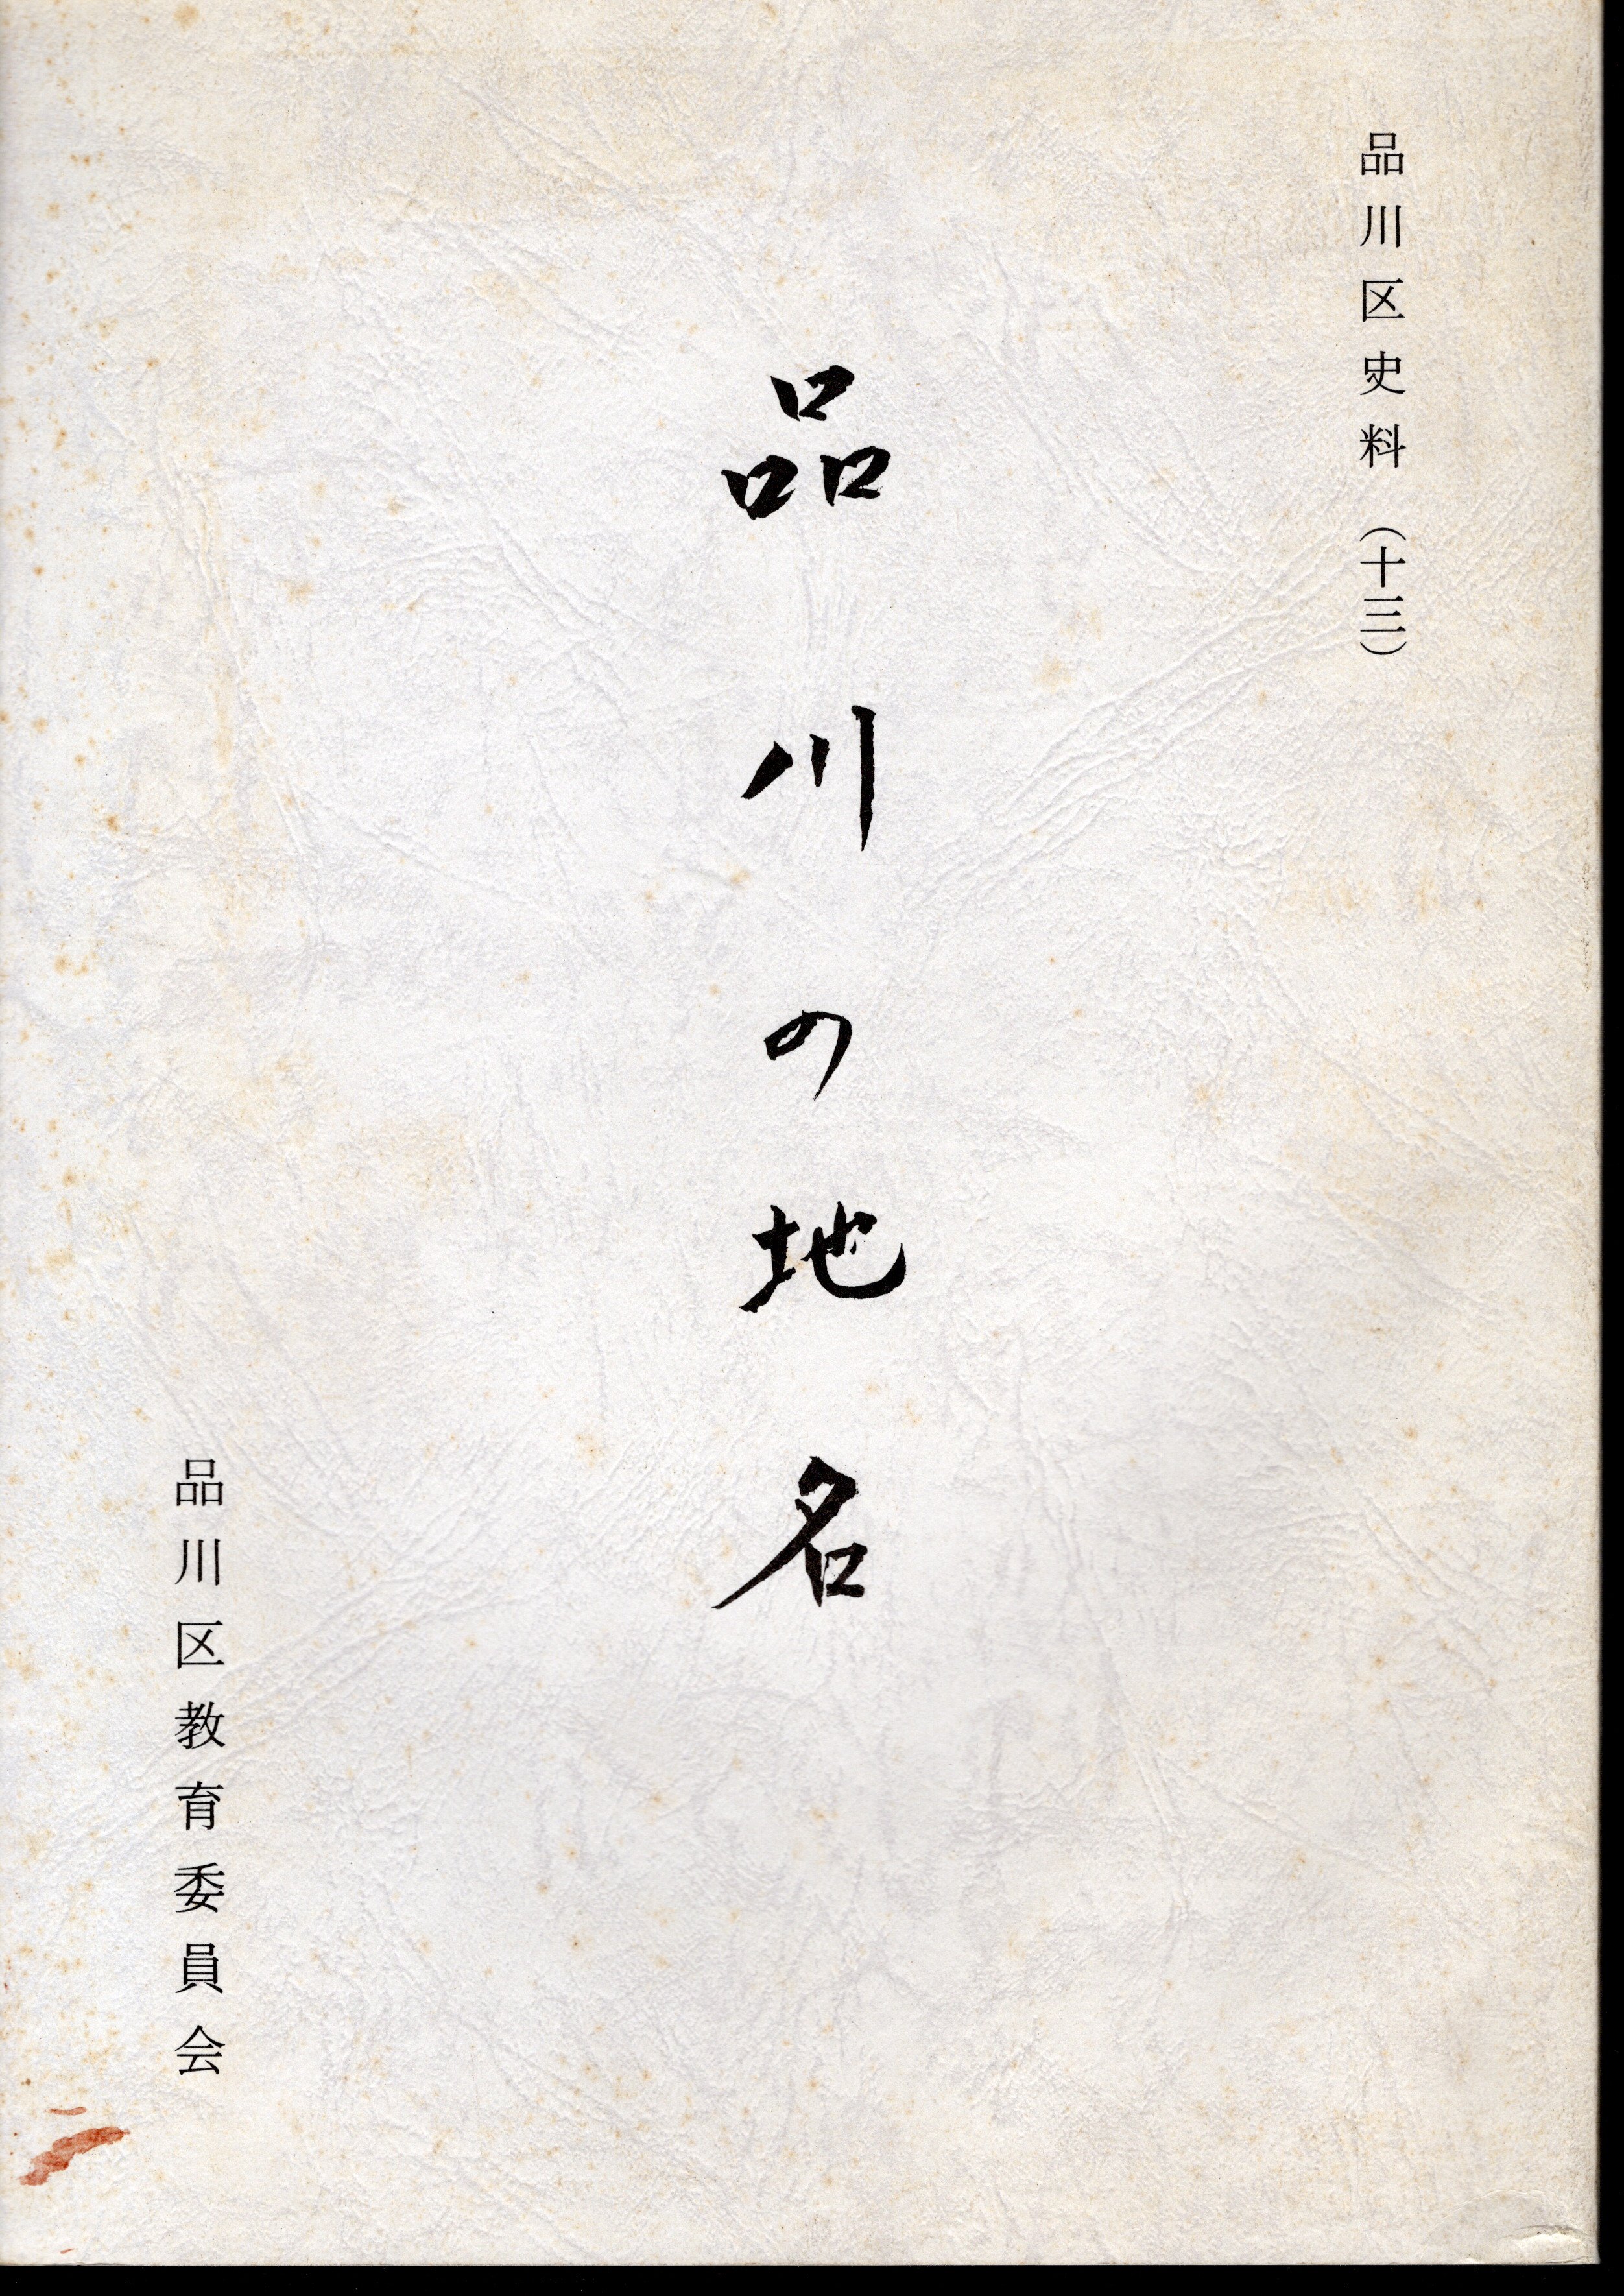 品川区史料（十三）
品川の地名
品川区教育委員会